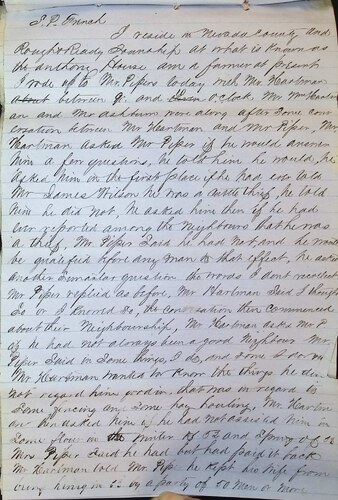 S. P. French
I reside in Nevada County and
Rough & Ready Township at what is known as
the Anthony House am a farmer at present
I rode up to Mr Pipers today with Mr Hartman
about between 9 and o'clock, Mr Wm Hartm
an and Mr Ashburn were along after Some con
versation between Mr Hartman and Mr Piper, Mr
Hartman asked Mr Piper if he would answer
him a few questions, he told him he would, he
asked him in the first place if he had ever told
Mr James Wilson he was a cattle thief, he told
him he did not, he asked him then if he had
ever reported among the Neighbours that he was
a thief, Mr. Piper Said he had not, and he would
be qualified before any man to that effect, he asked
another Simular question the words I dont recollect
Mr Piper replied as before, Mr Hartman Said I thought
So or I knowed So, the Conversation then commenced
about their Neighbourship, Mr Hartman asks Mr P
if he had not always been a good Neighbour Mr
Piper Said in Some things, I do, and some I do not
Mr Hartman wanted to know the things he did
not regard him good in, that was in regard to
Some fencing and Some hay hauling, Mr Hartm
an then asked him if he had not assisted him in
Some flour in the winter of 52 and Spring of 53
Mrs Piper Said he had but had paid it back
Mr Hartman told Mr Piper he kept his wife from
being in 52 by a party of 50 men or more